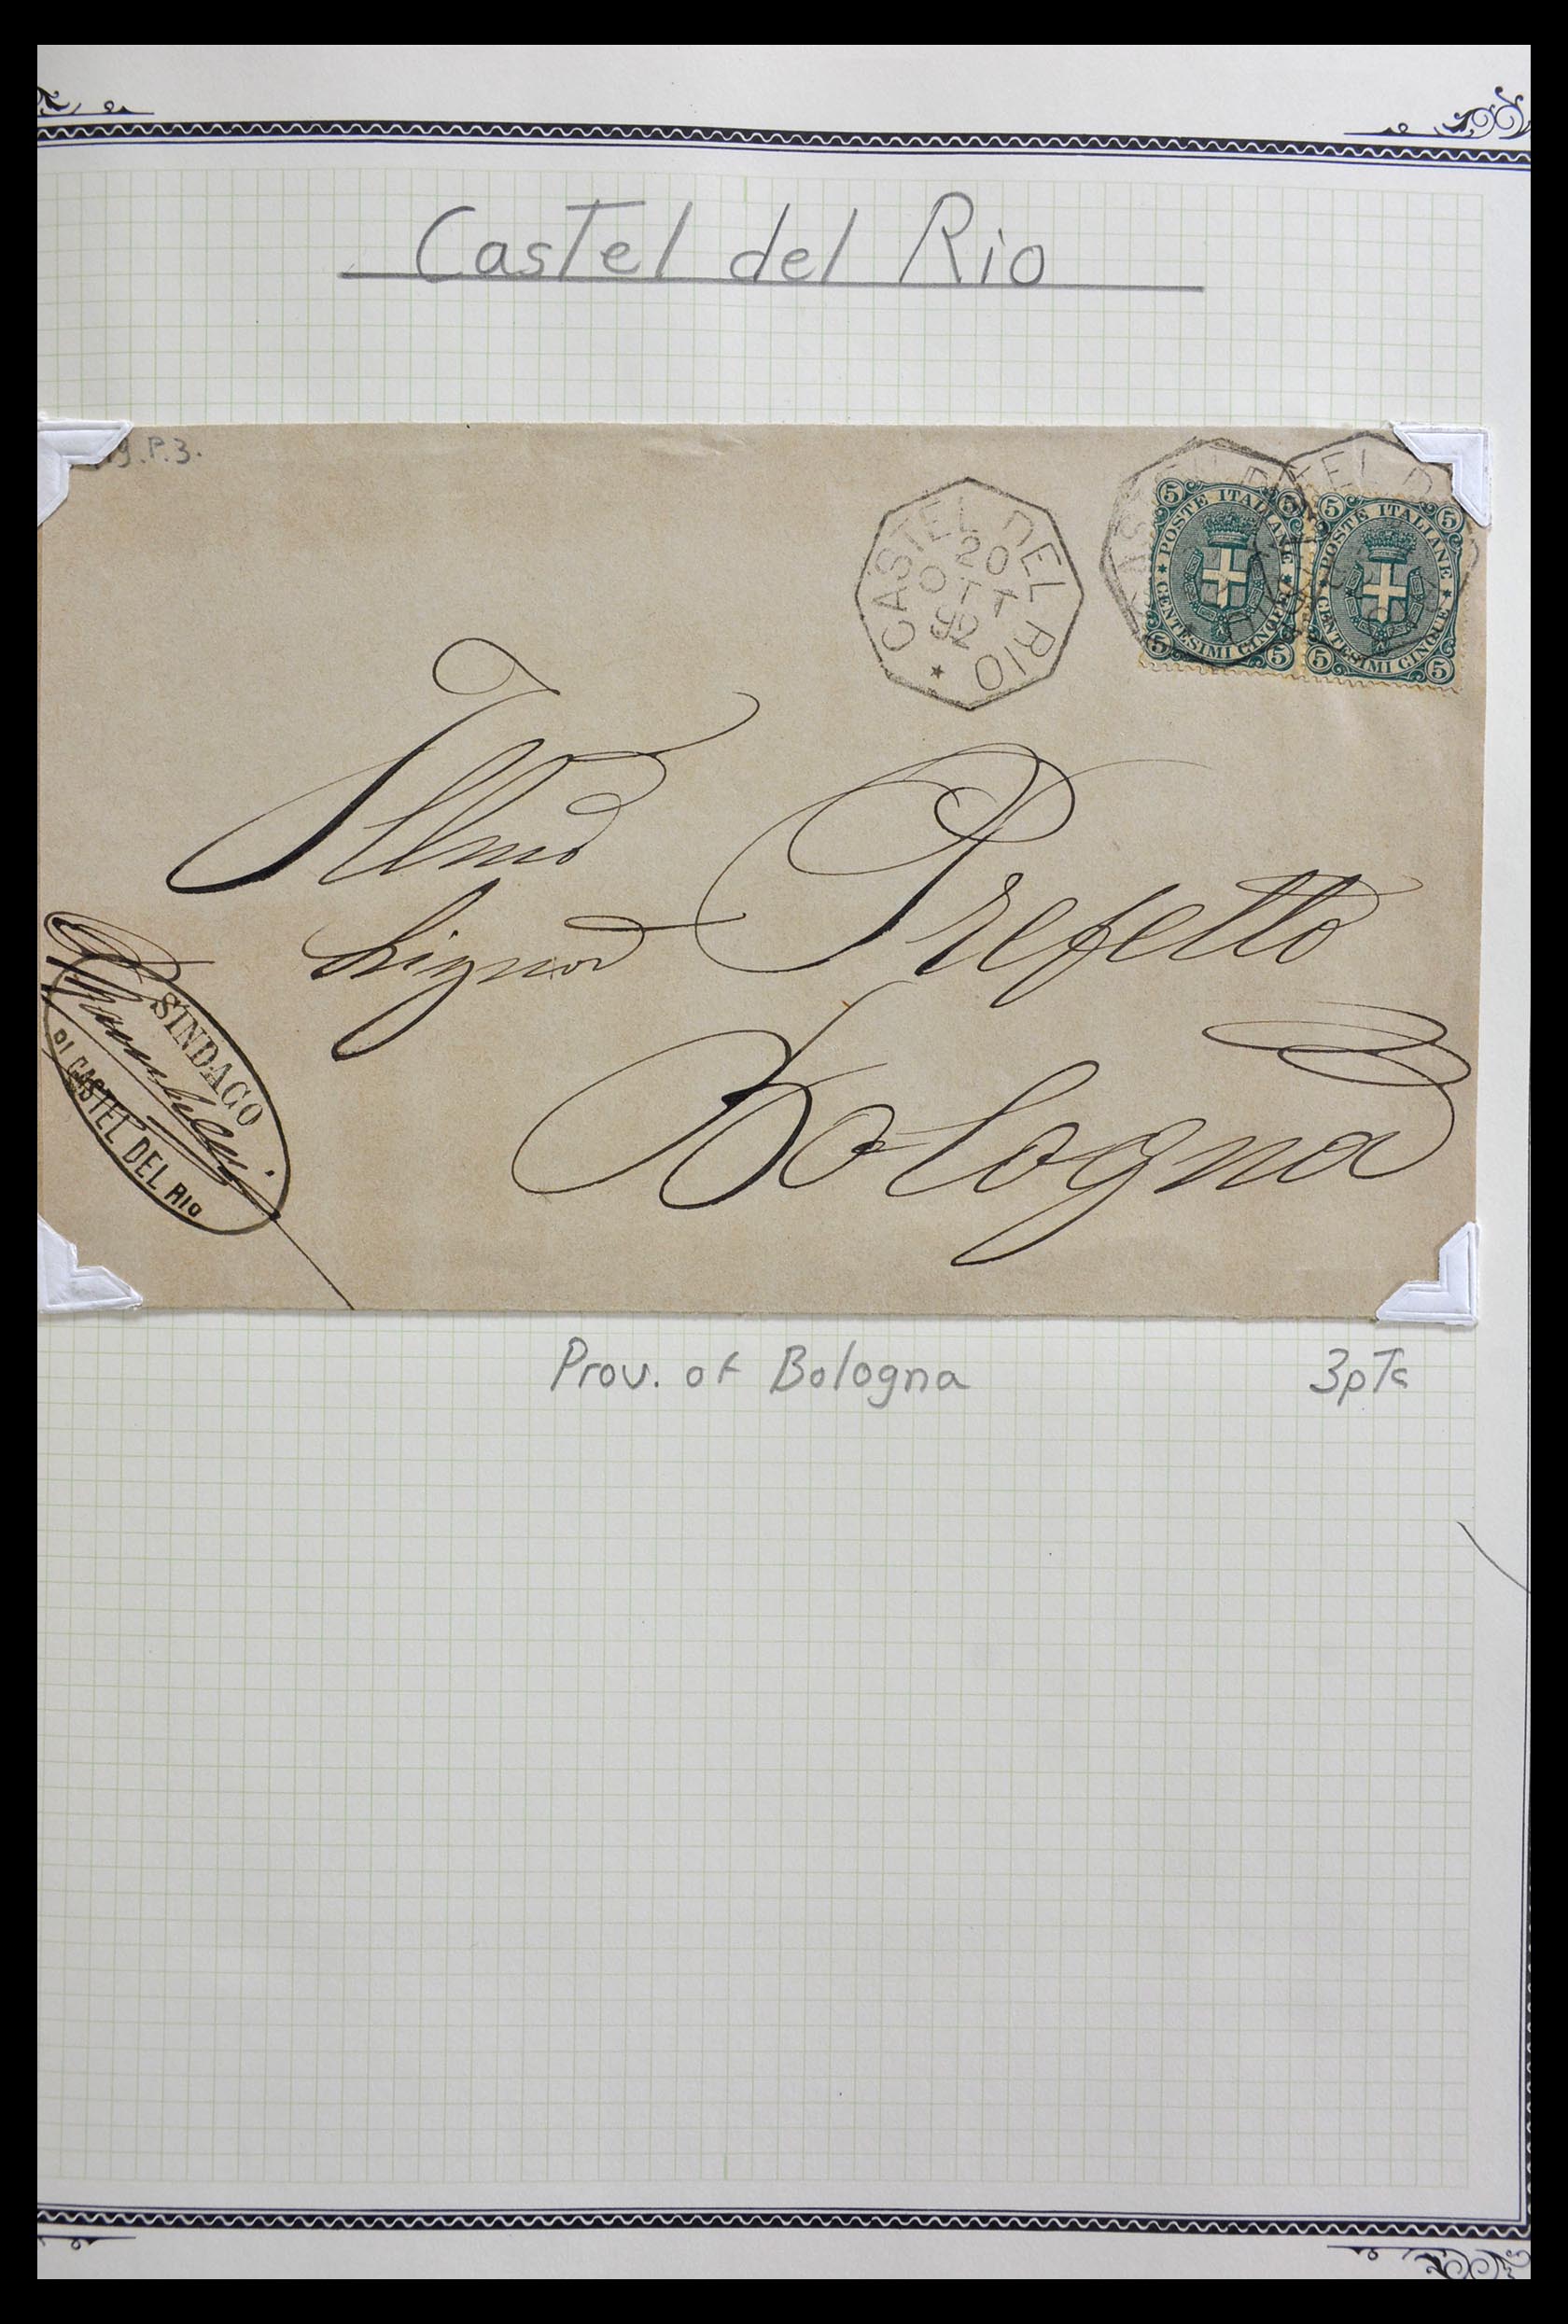 Castel del Rio
.P.3.
CASTEL DEL RIO
20
OTT
92
POSTE ITALIANE
CENTESIMI CINQUE
5 5 5 5
POSTE ITALIANE
CENTESIMI CINQUE
5 5 5 5
Illmo
Signor Prefetto
Bologna
SINDACO
DI CASTEL DEL RIO
Prov. of Bologna 3pts